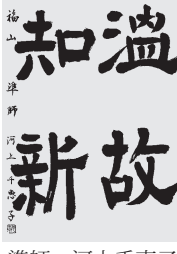 温故
知新
福山 準師 河上千恵子
準師 河上千恵子